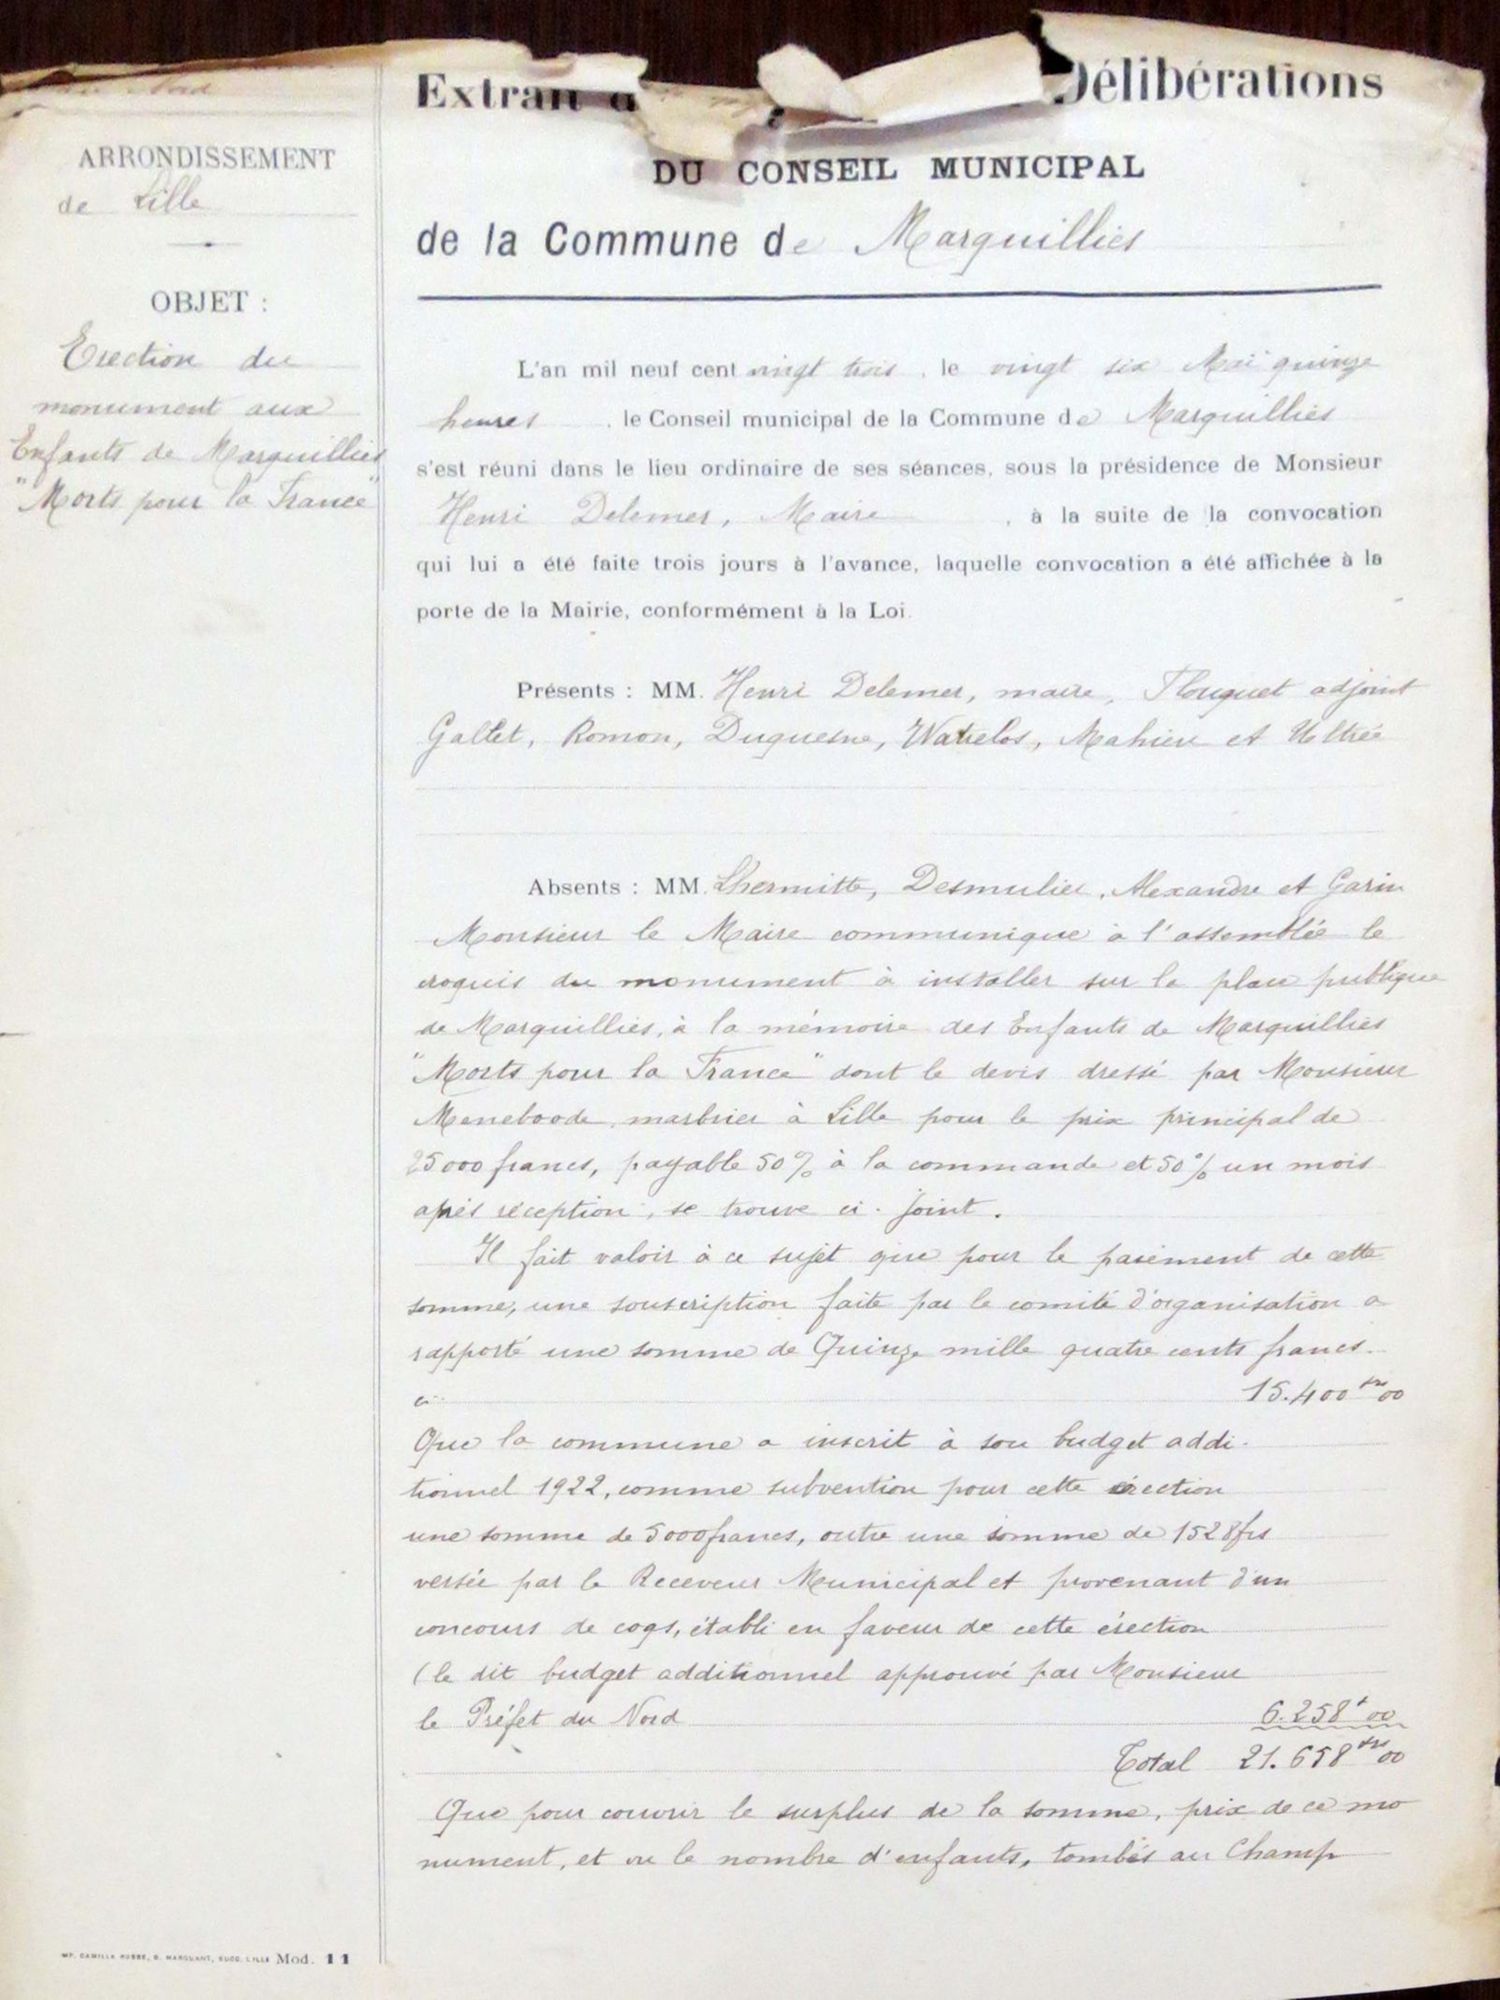 Nord
ARRONDISSEMENT
de Lille
OBJET :
Erection du
monument aux
Enfants de Marquillies
"Morts pour la France"
Extrait d Délibérations
DU CONSEIL MUNICIPAL
de la Commune de Marquillies
L'an mil neuf cent vingt trois, le vingt six Mai quinze
heures, le Conseil municipal de la Commune de Marquillies
s'est réuni dans le lieu ordinaire de ses séances, sous la présidence de Monsieur
Henri Delemer, Maire, à la suite de la convocation
qui lui a été faite trois jours à l'avance, laquelle convocation a été affichée à la
porte de la Mairie, conformément à la Loi.
Présents : MM. Henri Delemer, maire, Flouquet adjoint
Gallet, Romon, Duquesne, Watrelos, Mahieu et
Absents : MM. Lhermitte, Desmulier, Alexandre et Garin
Monsieur le Maire communique à l'assemblée le
croquis du monument à installer sur la place publique
de Marquillies, à la mémoire des Enfants de Marquillies
"Morts pour la France" dont le devis dressé par Monsieur
Meneboode, marbrier à Lille pour le prix principal de
25000 francs, payable 50% à la commande et 50% un mois
après réception, se trouve ci-joint.
Il fait valoir à ce sujet que pour le paiement de cette
somme, une souscription faite par le comité d'organisation a
rapporté une somme de Quinze mille quatre cents francs.
ci 15.400 frs 00
Que la commune a inscrit à son budget addi-
tionnel 1922, comme subvention pour cette érection
une somme de 5000 francs, outre une somme de 1528 frs
versée par le Receveur Municipal et provenant d'un
concours de coqs, établi en faveur de cette érection
(le dit budget additionnel approuvé par Monsieur
le Préfet du Nord 6.258 f 00
Total 21.658 frs 00
Que pour couvrir le surplus de la somme, prix de ce mo
nument, et vu le nombre d'enfants, tombés au Champ
MARQUANT, SUCC. LILLE Mod. 11